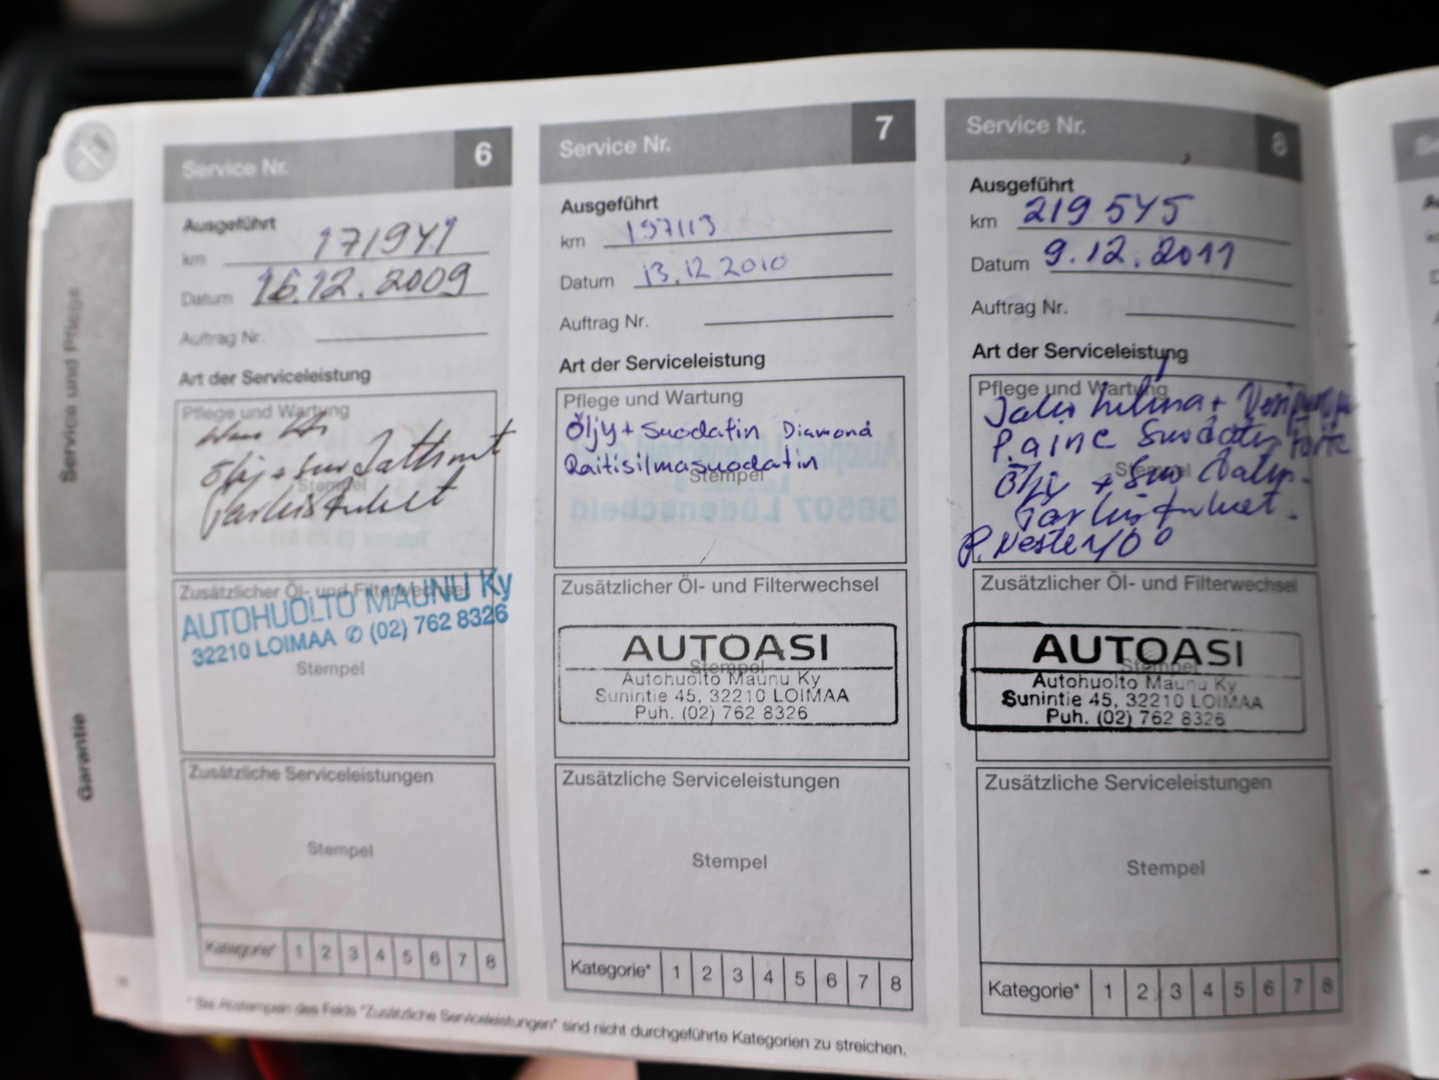 Service und Pflege
Garantie
Service Nr. 6
Ausgeführt
km 171941
Datum 16.12.2009
Auftrag Nr.
Art der Serviceleistung
Pflege und Wartung
Öljy + Suodattimet
Tarkistukset
Stempel
Zusätzlicher Öl- und Filterwechsel
AUTOHUOLTO MAUNU Ky
32210 LOIMAA ✆ (02) 762 8326
Stempel
Zusätzliche Serviceleistungen
Stempel
Kategorie* 1 2 3 4 5 6 7 8
Service Nr. 7
Ausgeführt
km 197113
Datum 13.12.2010
Auftrag Nr.
Art der Serviceleistung
Pflege und Wartung
Öljy + Suodatin Diamond
Raitisilmasuodatin
Stempel
58507 Lüdenscheid
Zusätzlicher Öl- und Filterwechsel
AUTOASI
Stempel
Autohuolto Maunu Ky
Sunintie 45, 32210 LOIMAA
Puh. (02) 762 8326
Zusätzliche Serviceleistungen
Stempel
Kategorie* 1 2 3 4 5 6 7 8
Service Nr. 8
Ausgeführt
km 219545
Datum 9.12.2011
Auftrag Nr.
Art der Serviceleistung
Pflege und Wartung
Jako hihna + Vesipumppu
P.aine Suodatin
Stempel
Öljy + Suodatin
Tarkistukset.
Zusätzlicher Öl- und Filterwechsel
AUTOASI
Stempel
Autohuolto Maunu Ky
Sunintie 45, 32210 LOIMAA
Puh. (02) 762 8326
Zusätzliche Serviceleistungen
Stempel
Kategorie* 1 2 3 4 5 6 7 8
* Bei Abstempeln des Felds "Zusätzliche Serviceleistungen" sind nicht durchgeführte Kategorien zu streichen.